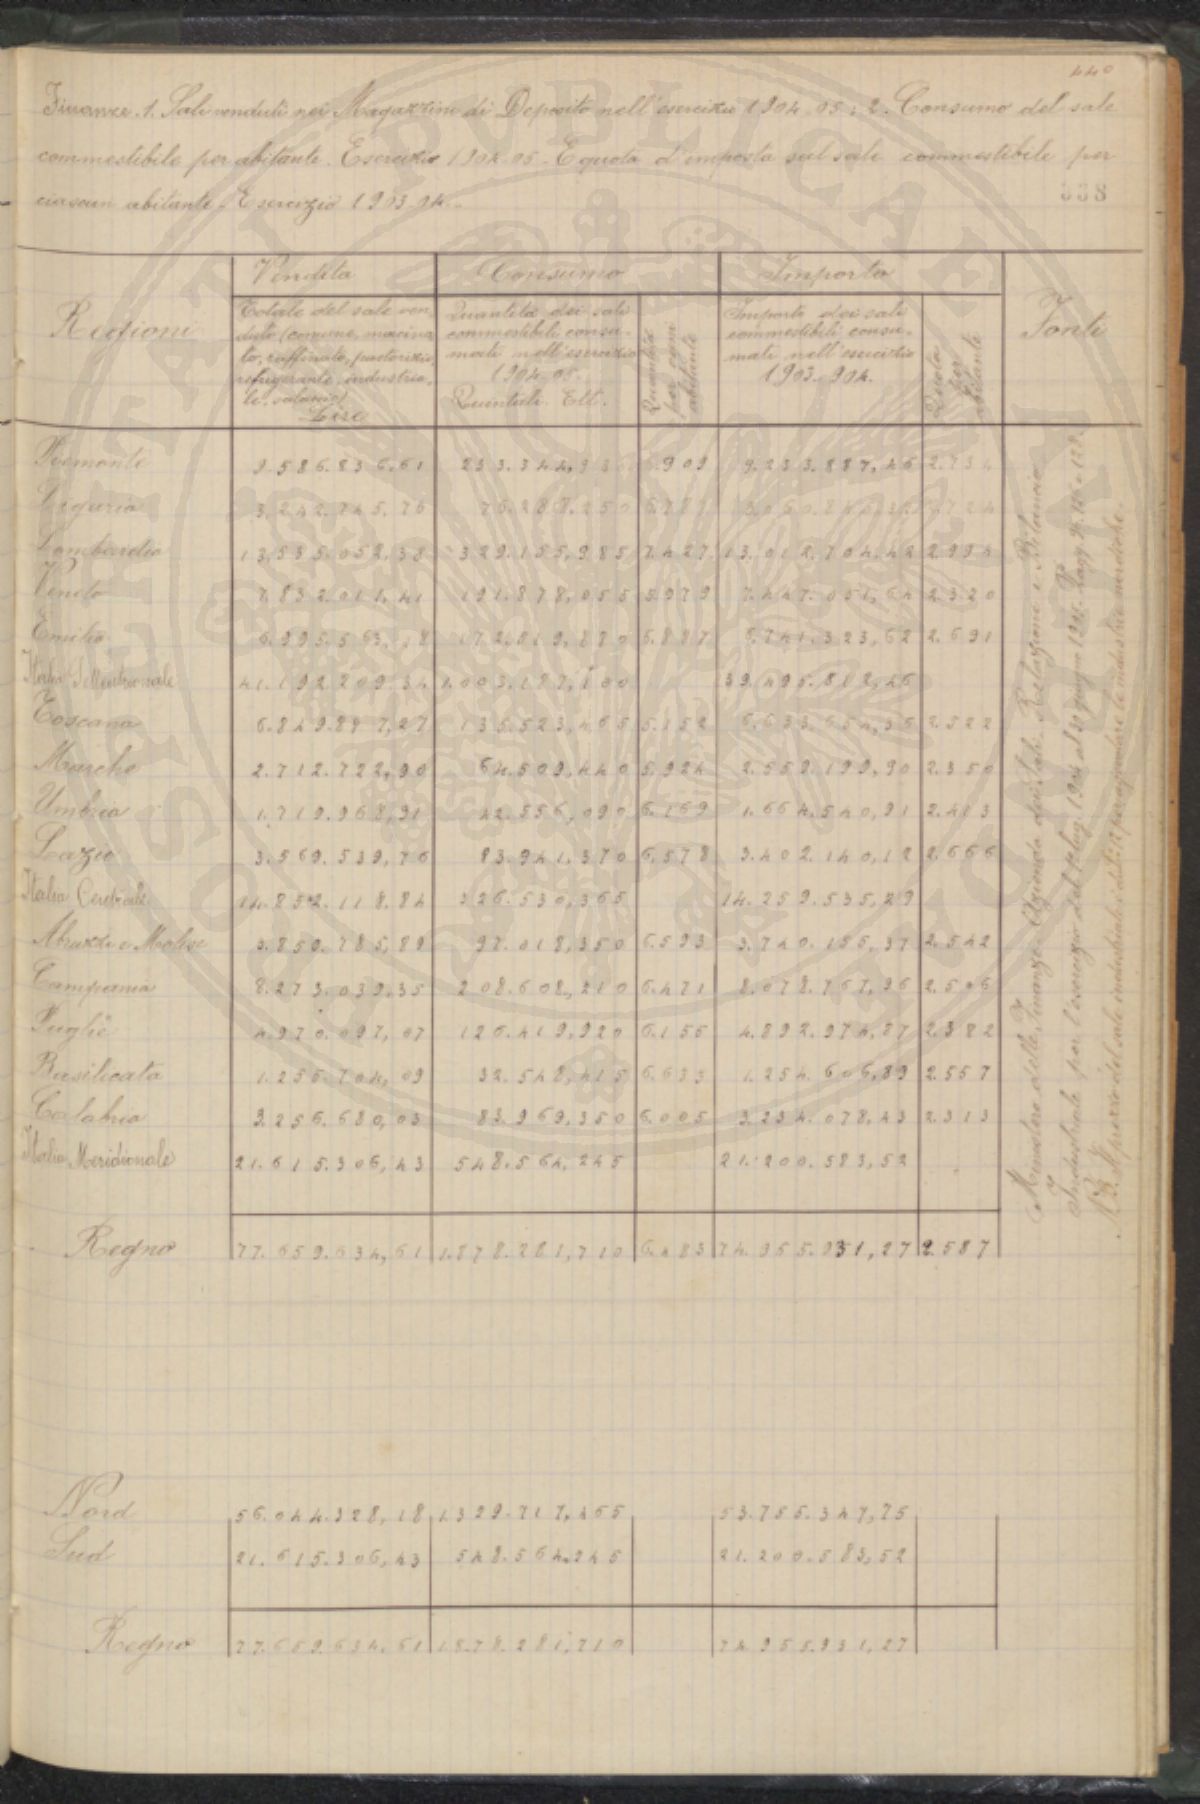 440
Finanze. 1. Sali venduti nei Magazzini di Deposito nell'esercizio 1904-05; 2. Consumo del sale
commestibile per abitante. Esercizio 1904-05. E quota d'imposta sul sale commestibile per
ciascun abitante. Esercizio 1903-04.
338
Regioni Vendita Consumo Importo Fonti
Totale del sale ven-
duto (comune, macina-
to, raffinato, pastorizio
refrigerante, industria-
le, salamoia)
Lire
Quantità dei sali
commestibili consu-
mati nell'esercizio
1904-05.
Quintali. Ett.
Quantità
per ogni
abitante
Importo dei sali
commestibili consu-
mati nell'esercizio
1903-904.
Quota
per
abitante
Piemonte 9.586.836.61 233.344,936 6.909 9.233.887,46 2.734
Liguria 3.242.745.76 75.288.250
Lombardia 13.535.052,38 329.155,985 7.427 13.012.704,42 2.994
Veneto 7.832.011,41 191.878,055 5.979 7.447.051,64 2.320
Emilia 6.995.563,18 172.819,870 6.887 6.741.323,62 2.691
Italia Settentrionale 41.192.209 34 1.003.187,100 39.496.812,46
Toscana 6.849.897,27 135.523,465 5.152 6.633.654,36 2.522
Marche 2.712.722,90 64.509,440 5.924 2.559.199,90 2.350
Umbria 1.719.968,91 42.556,090 6.169 1.664.540,91 2.413
Lazio 3.569.539,76 83.941,370 6.578 3.402.140,12 2.666
Italia Centrale 14.852.118.84 326.530,365 14.259.535,29
Abruzzi e Molise 3.859.785,89 97.018,350 6.593 3.740.156,37 2.542
Campania 8.273.039,35 208.608,210 6.471 8.078.767,96 2.506
Puglie 4.970.097,07 126.419,920 6.156 4.892.974,87 2.382
Basilicata 1.255.704,09 32.548,415 6.633 1.254.606,89 2.557
Calabria 3.256.680,03 83.969,350 6.005 3.234.078,43 2.313
Italia Meridionale 21.615.306,43 548.564,245 21.200.583,52
Regno 77.659.634,61 1.878.281,710 6.483 74.955.931,27 2.587
Ministero delle Finanze. Azienda dei Sali. Relazione e Bilancio
Industriale per l'esercizio dal 1º lug. 1904 al 30 giugno 1905.
Nord 56.044.328,18 1329.717,465 53.755.347,75
Sud 21.615.306,43 548.564.245 21.200.583,52
Regno 77.659.634.61 1878.281,710 74.955.931,27